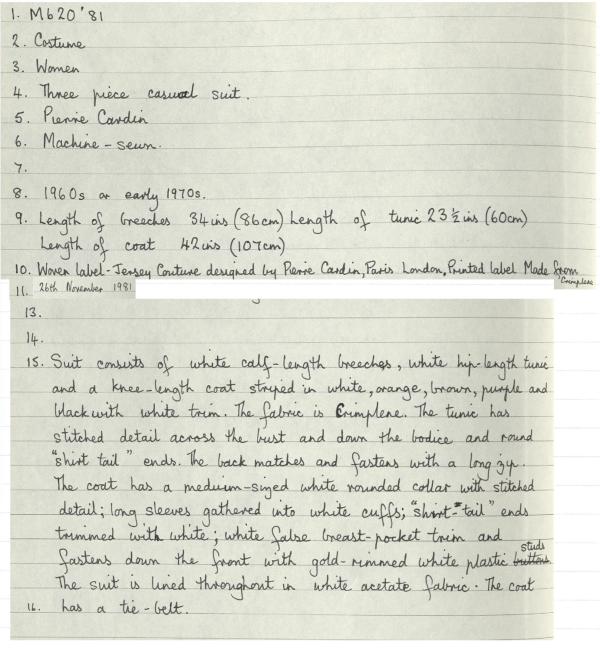 1. M620'81
2. Costume
3. Women
4. Three piece casual suit.
5. Pierre Cardin
6. Machine-sewn.
7.
8. 1960s or early 1970s.
9. Length of breeches 34ins (86cm) Length of tunic 23½ins (60cm)
Length of coat 42ins (107cm)
10. Woven label-Jersey Couture designed by Pierre Cardin, Paris London, Printed label Made from
"Crimplene
11. 26th November 1981
13.
14.
15. Suit consists of white calf-length breeches, white hip-length tunic
and a knee-length coat striped in white, orange, brown, purple and
black with white trim. The fabric is Crimplene. The tunic has
stitched detail across the bust and down the bodice and round
"shirt tail" ends. The back matches and fastens with a long zip.
The coat has a medium-sized white rounded collar with stitched
detail; long sleeves gathered into white cuffs; "shirt-tail" ends
trimmed with white; white false breast-pocket trim and
studs
fastens down the front with gold-rimmed white plastic buttons.
The suit is lined throughout in white acetate fabric. The coat
16. has a tie-belt.